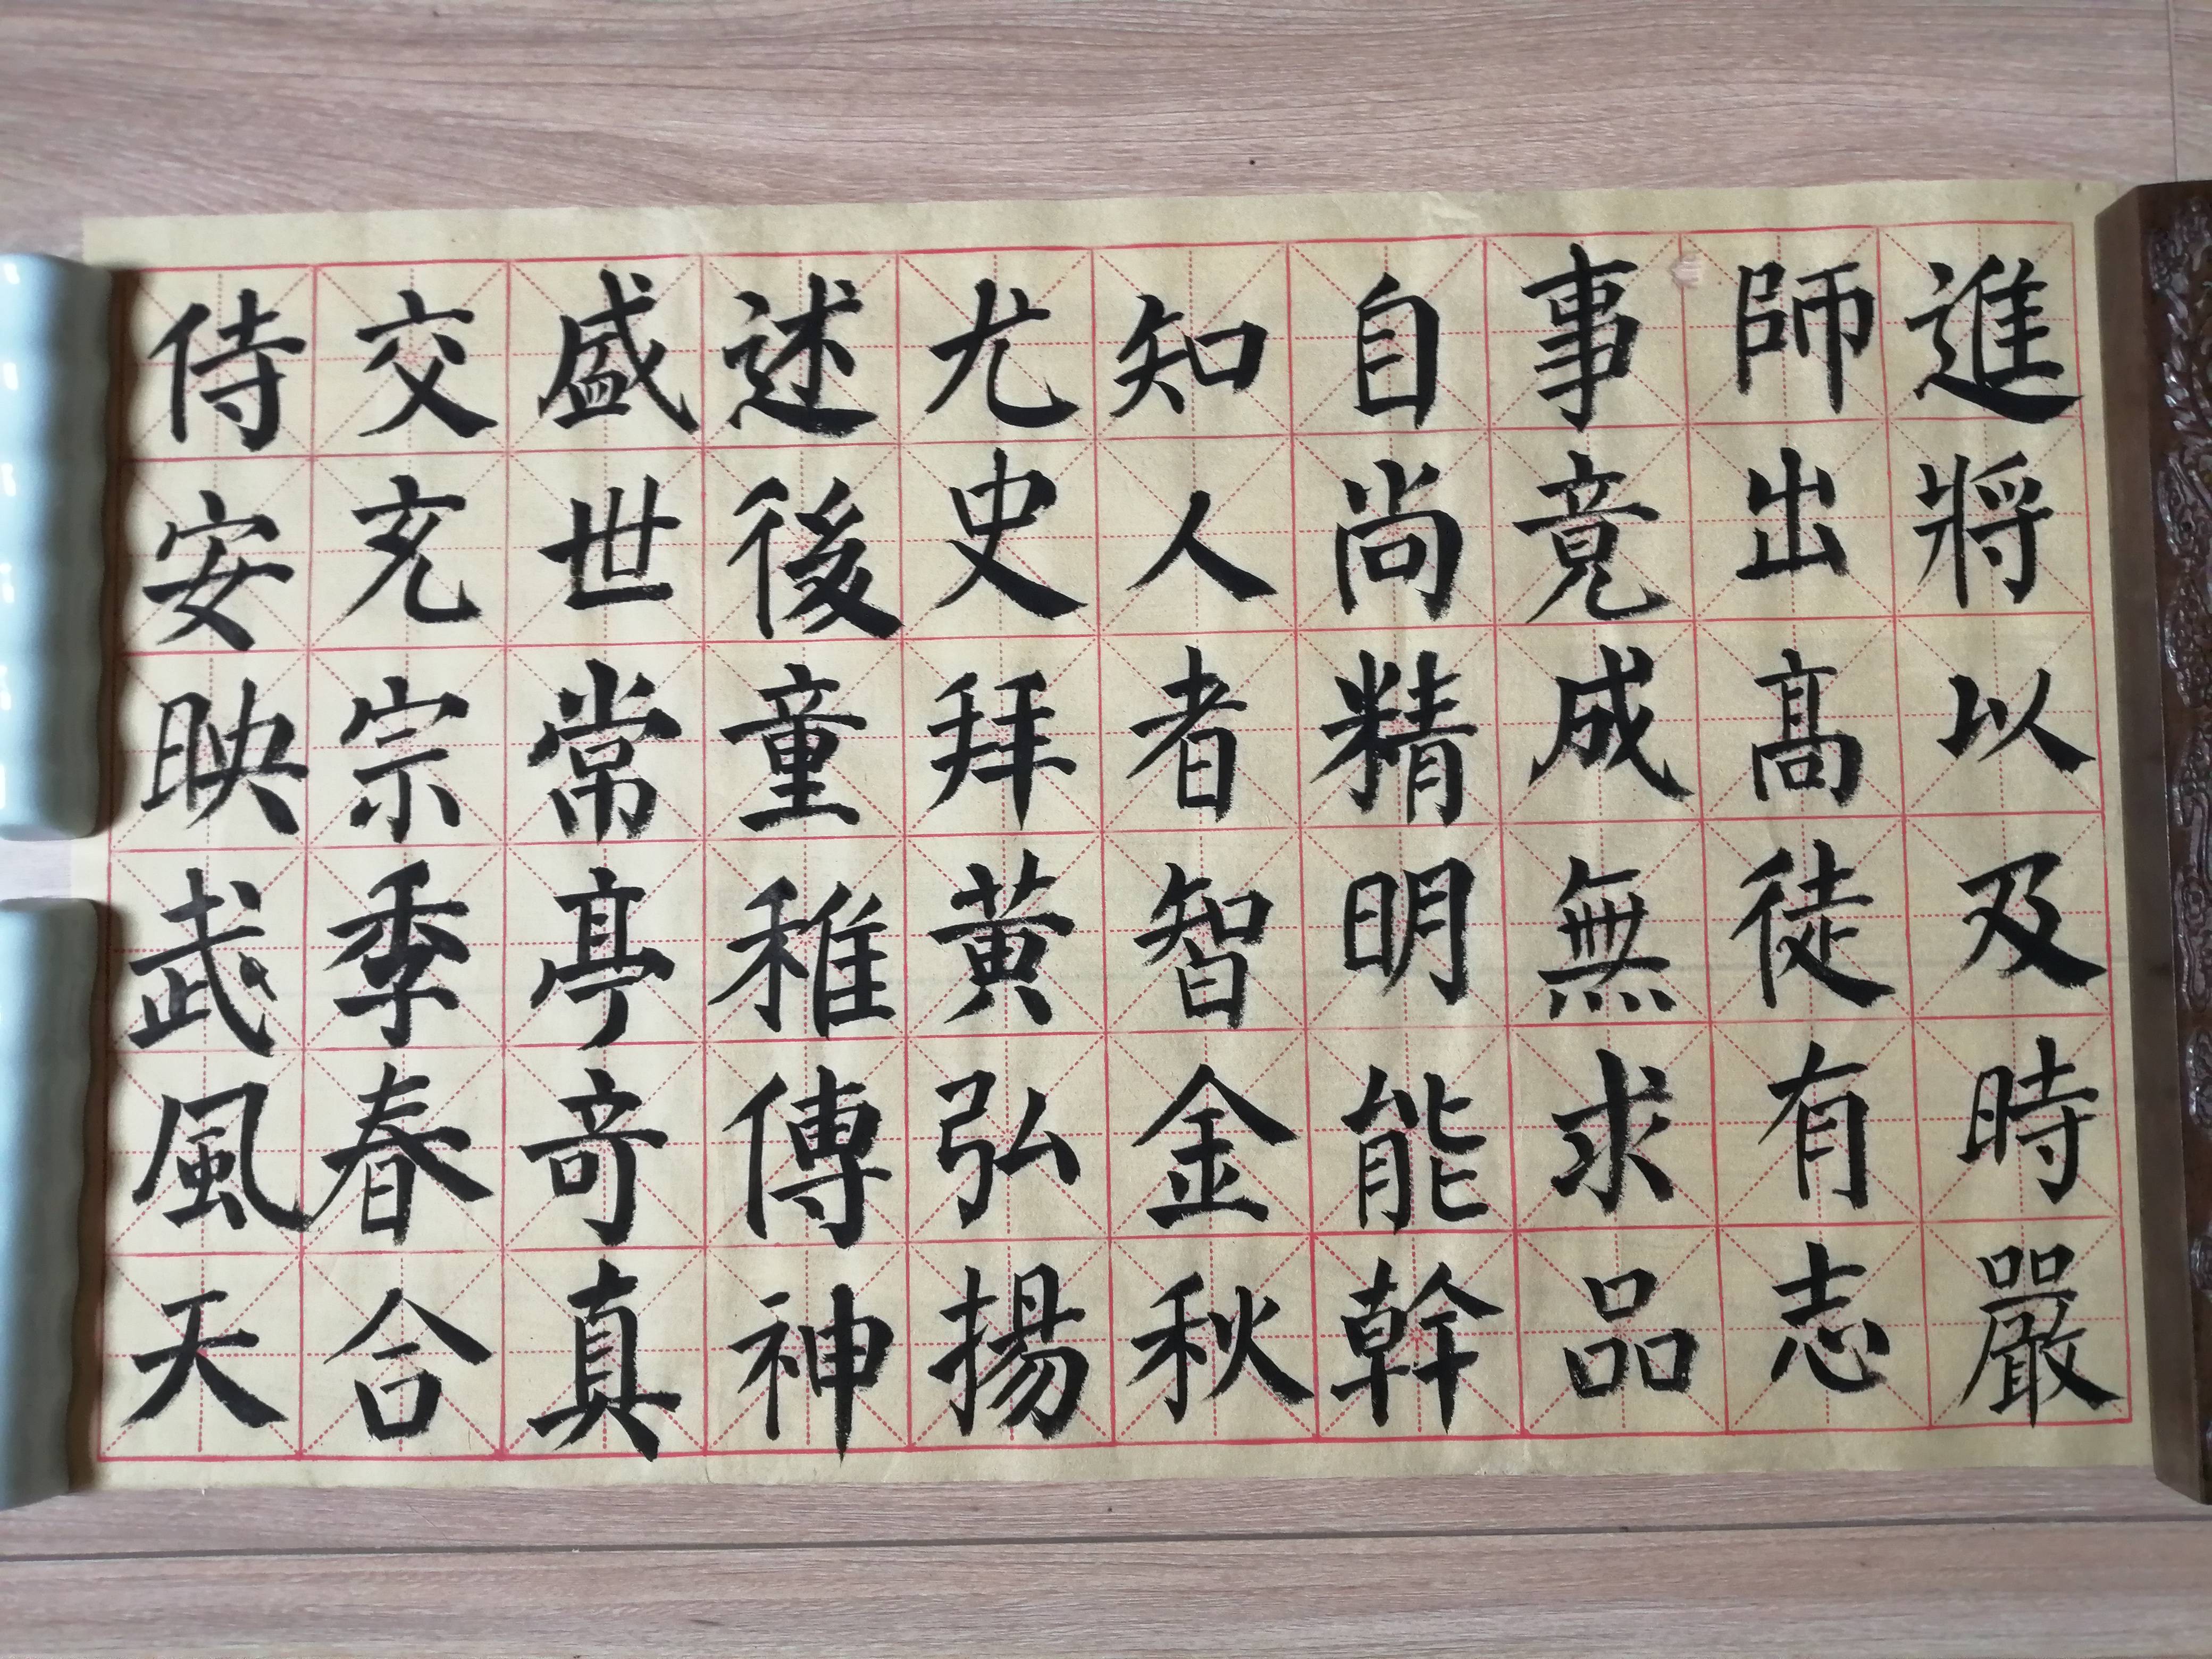 進將以及時嚴
師出高徒有志
事竟成無求品
自尚精明能幹
知人者智金秋
尤史拜黄弘揚
述後童稚傳神
盛世常亭奇真
交玄宗季春合
侍安映武風天